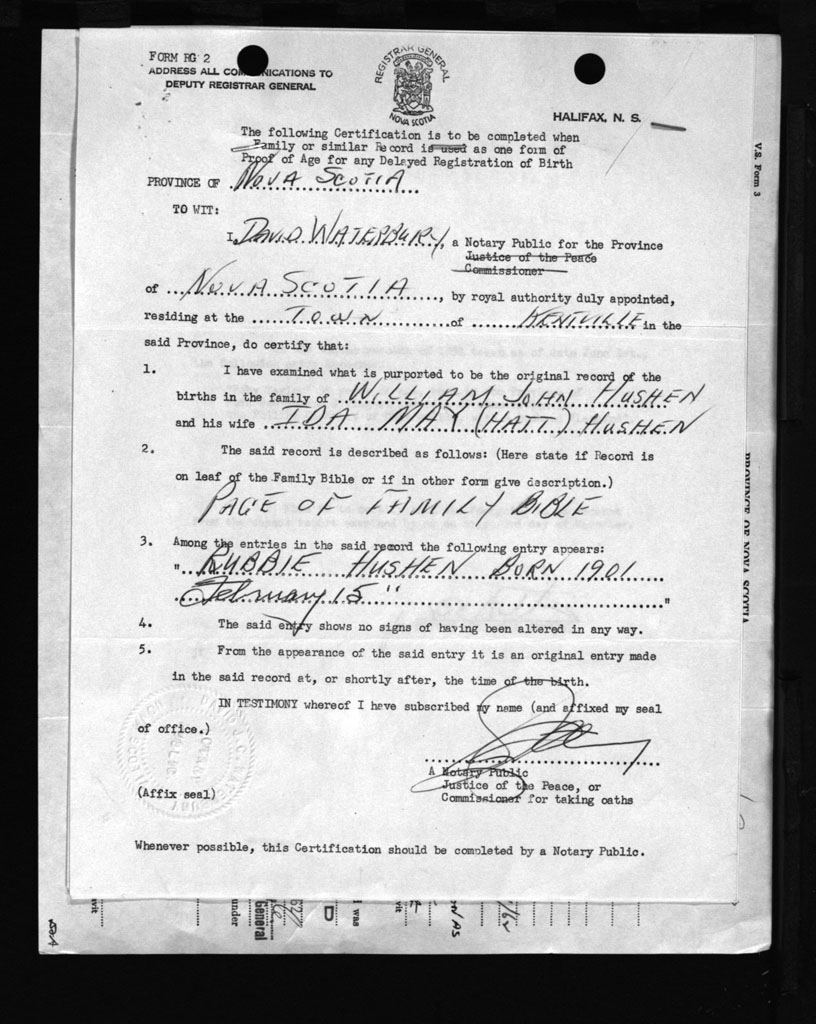 FORM RG 2
ADDRESS ALL COMMUNICATIONS TO
DEPUTY REGISTRAR GENERAL
REGISTRAR GENERAL
NOVA SCOTIA
HALIFAX, N. S.
The following Certification is to be completed when
Family or similar Record is used as one form of
Proof of Age for any Delayed Registration of Birth
PROVINCE OF NOVA SCOTIA
TO WIT:
I, DAVID WATERBURY, a Notary Public for the Province
Justice of the Peace
Commissioner
of NOVA SCOTIA, by royal authority duly appointed,
residing at the TOWN of KENTVILLE in the
said Province, do certify that:
1. I have examined what is purported to be the original record of the
births in the family of WILLIAM JOHN HUSHEN
and his wife IDA MAY (HATT) HUSHEN
2. The said record is described as follows: (Here state if Record is
on leaf of the Family Bible or if in other form give description.)
PAGE OF FAMILY BIBLE
3. Among the entries in the said record the following entry appears:
" RUBBIE HUSHEN BORN 1901
February 15 " "
4. The said entry shows no signs of having been altered in any way.
5. From the appearance of the said entry it is an original entry made
in the said record at, or shortly after, the time of the birth.
IN TESTIMONY whereof I have subscribed my name (and affixed my seal
of office.)
A Notary Public
Justice of the Peace, or
Commissioner for taking oaths
(Affix seal)
Whenever possible, this Certification should be completed by a Notary Public.
V.S. Form 3
PROVINCE OF NOVA SCOTIA
under
General
D
I was